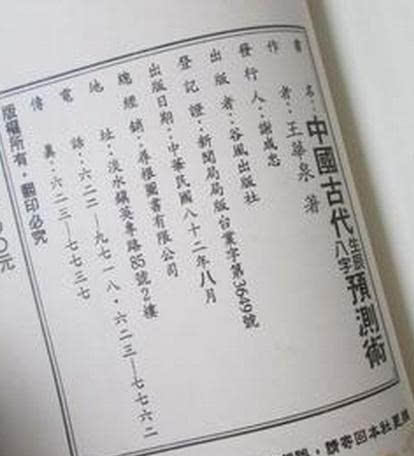 書名：中國古代生辰八字預測術
作者：王華泉 著
發行人：謝成忠
出版者：谷風出版社
登記證：新聞局局版台業字第3649號
出版日期：中華民國八十二年八月
總經銷：尋根圖書有限公司
地址：淡水鎮英專路85號2樓
電話：六二二—九七一八・六二三—七七六二
傳真：六二三—七七三七
版權所有・翻印必究
〇元
請寄回本社更